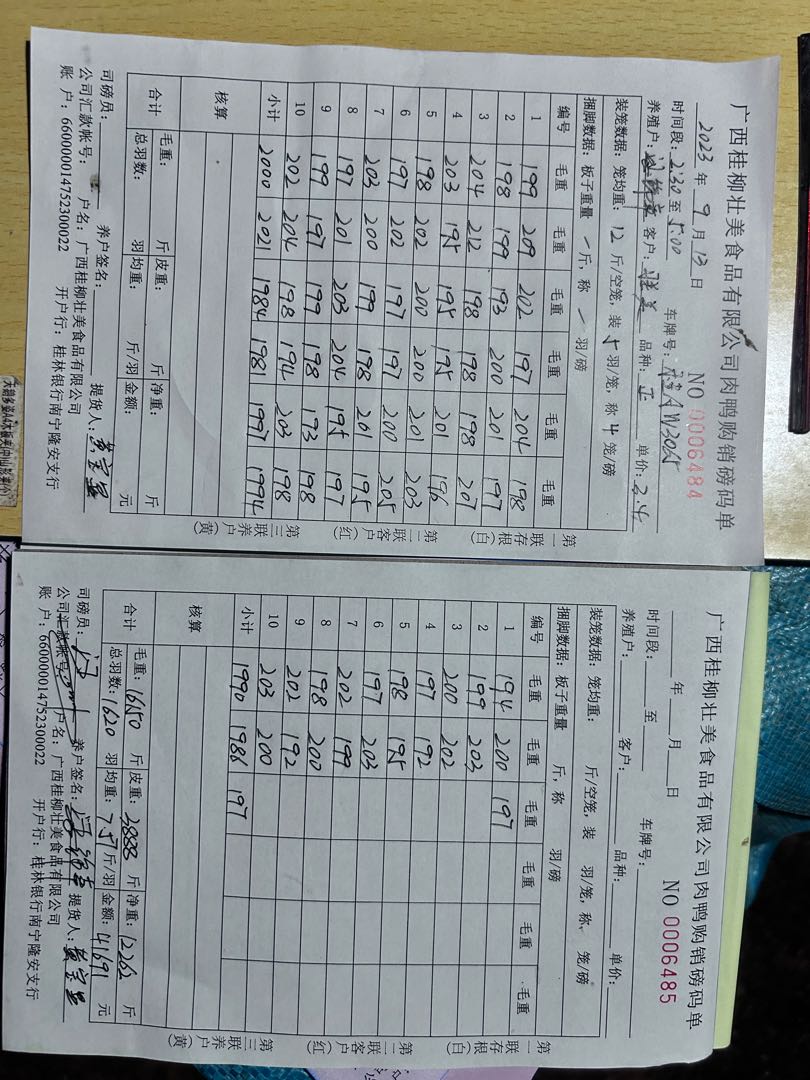 广西桂柳壮美食品有限公司肉鸭购销磅码单
2023 年 9 月 13 日 NO 0006484
时间段: 2:30 至 5:00 车牌号:
养殖户: 客户: 品种: 单价: 3.4
装笼数据: 笼均重: 12 斤/空笼, 装 5 羽/笼, 称 4 笼/磅
捆脚数据: 板子重量 斤, 称 羽/磅
编号 毛重 毛重 毛重 毛重 毛重 毛重
1 199 209 202 197 204 198
2 198 199 193 200 201 197
3 204 212 198 198 198 207
4 203 195 195 195 201 196
5 198 202 200 200 201 203
6 197 202 197 197 200 205
7 203 200 199 198 201 195
8 197 201 203 204 195 197
9 199 197 199 198 193 198
10 202 204 198 194 203 198
小计 2000 2021 1984 1981 1997 1994
核算
合计 毛重: 斤 皮重: 斤 净重: 斤
总羽数: 羽 均重: 斤/羽 金额: 元
司磅员: 养户签名: 提货人:
公司汇款帐号: 户名: 广西桂柳壮美食品有限公司
账 户: 660000014752300022 开户行: 桂林银行南宁隆安支行
第一联存根(白) 第二联客户(红) 第三联养户(黄)
广西桂柳壮美食品有限公司肉鸭购销磅码单
年 月 日 NO 0006485
时间段: 至 车牌号:
养殖户: 客户: 品种: 单价:
装笼数据: 笼均重: 斤/空笼, 装 羽/笼, 称 笼/磅
捆脚数据: 板子重量 斤, 称 羽/磅
编号 毛重 毛重 毛重 毛重 毛重 毛重
1 194 200 197
2 199 203
3 200 202
4 197 192
5 198 195
6 197 203
7 202 199
8 198 200
9 202 192
10 203 200
小计 1990 1986 197
核算
合计 毛重: 16150 斤 皮重: 3888 斤 净重: 12262 斤
总羽数: 1620 羽 均重: 7.57 斤/羽 金额: 41691 元
司磅员: 养户签名: 提货人:
公司汇款帐号: 户名: 广西桂柳壮美食品有限公司
账 户: 660000014752300022 开户行: 桂林银行南宁隆安支行
第一联存根(白) 第二联客户(红) 第三联养户(黄)